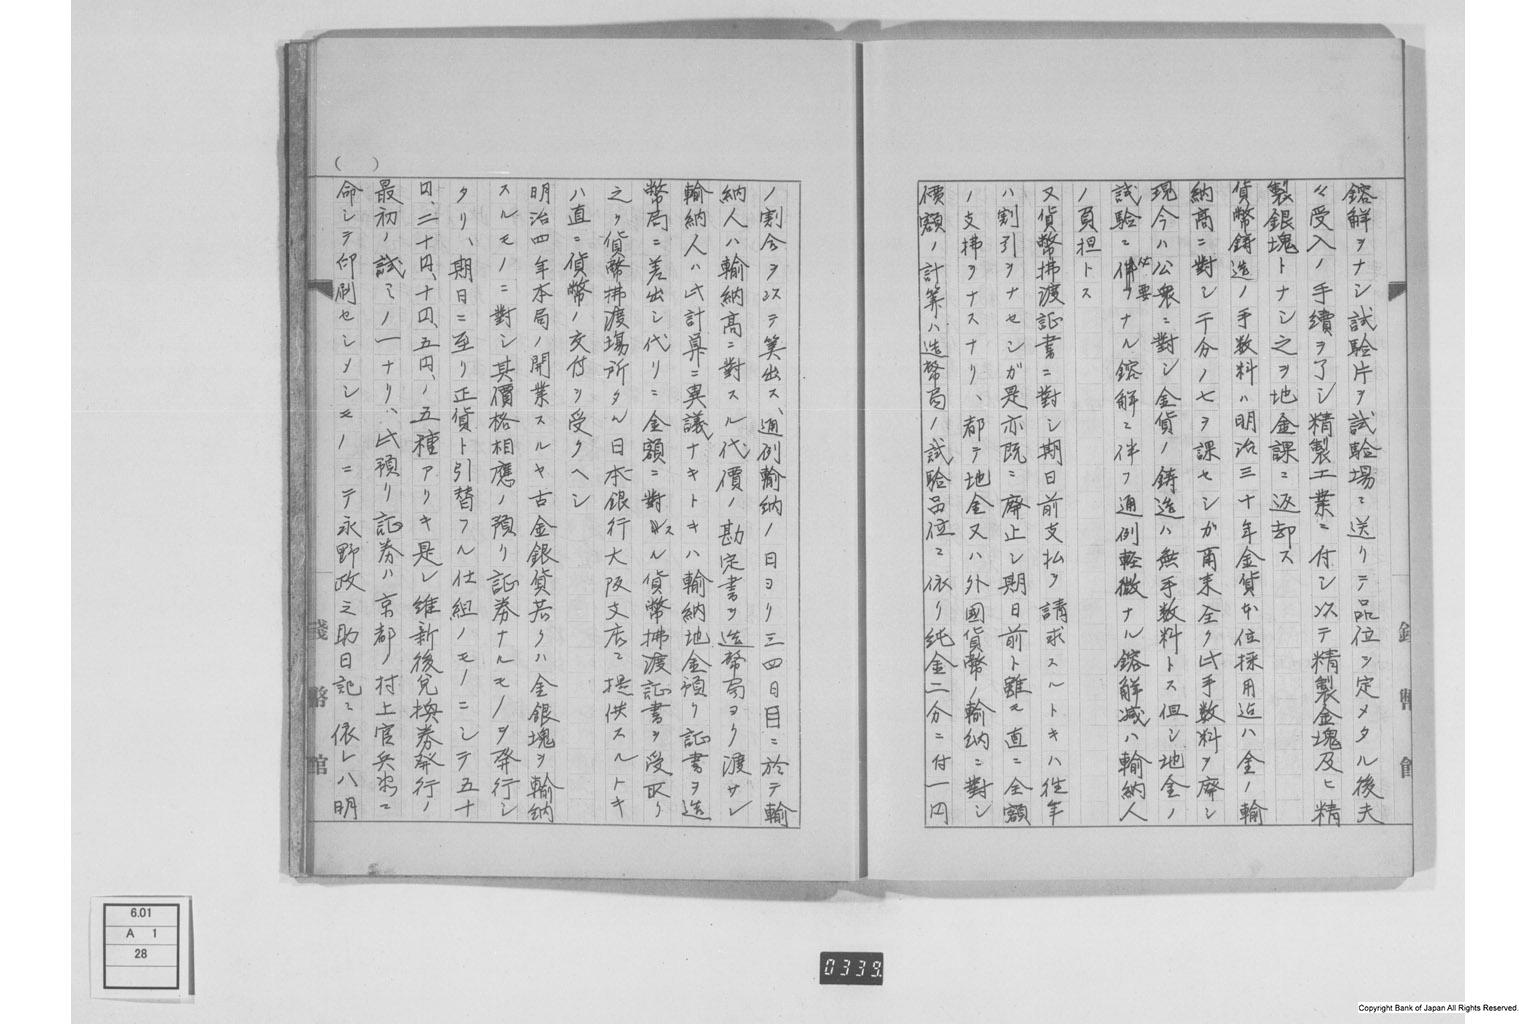 鎔解ヲナシ試験片ヲ試験場ニ送リテ品位ヲ定メタル後夫
々受入ノ手續ヲ了シ精製工業ニ付シ以テ精製金塊及ヒ精
製銀塊トナシ之ヲ地金課ニ返却ス
貨幣鋳造ノ手数料ハ明治三十年金貨本位採用迄ハ金ノ輸
納高ニ對シ千分ノ七ヲ課セシガ爾来全ク此手数料ヲ廃シ
現今ハ公衆ニ對シ金貨ノ鋳造ハ無手数料トス但シ地金ノ
試験ニ必要ナル鎔解ニ伴フ通例軽微ナル鎔解減ハ輸納人
ノ負担トス
又貨幣拂渡証書ニ對シ期日前支払ヲ請求スルトキハ往年
ハ割引ヲナセシガ是亦既ニ廃止シ期日前ト雖モ直ニ全額
ノ支拂ヲナスナリ、都テ地金又ハ外國貨幣ノ輸納ニ對シ
價額ノ計算ハ造幣局ノ試験品位ニ依リ純金二分ニ付一円
ノ割合ヲ以テ算出ス、通例輸納ノ日ヨリ三四日目ニ於テ輸
納人ハ輸納高ニ對スル代價ノ勘定書ヲ造幣局ヨリ渡サレ
輸納人ハ此計算ニ異議ナキトキハ輸納地金預リ証書ヲ造
幣局ニ差出シ代リニ金額ニ對スル貨幣拂渡証書ヲ受取リ
之ヲ貨幣拂渡場所タル日本銀行大阪支店ニ提供スルトキ
ハ直ニ貨幣ノ交付ヲ受クヘシ
明治四年本局ノ開業スルヤ古金銀貨若クハ金銀塊ヲ輸納
スルモノニ對シ其價格相應ノ預リ証券ナルモノヲ発行シ
タリ、期日ニ至リ正貨ト引替フル仕組ノモノニシテ五十
円、二十円、十円、五円、ノ五種アリキ是レ維新後兌換券発行ノ
最初ノ試ミノ一ナリ、此預リ証券ハ京都ノ村上官兵衛ニ
命シテ印刷セシメシモノニテ永野政之助日記ニ依レハ明
( )
錢幣館
6.01
A 1
28
0339.
Copyright Bank of Japan All Rights Reserved.